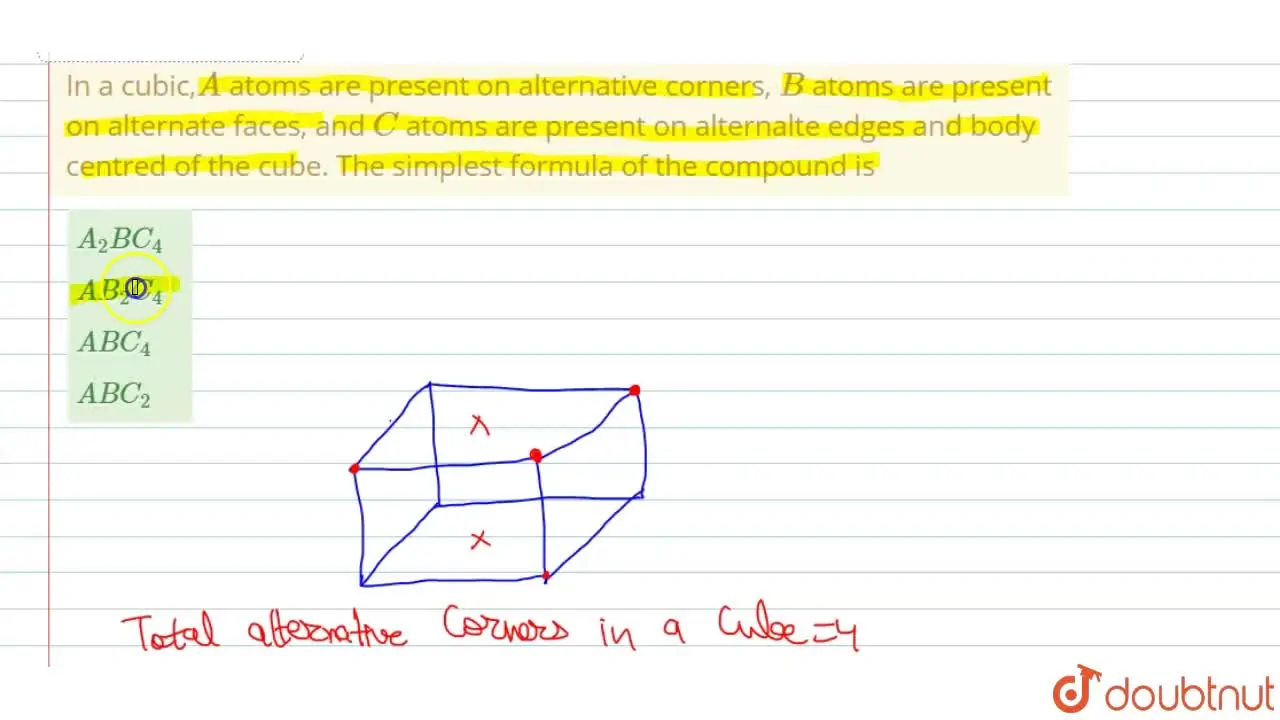 In a cubic, A atoms are present on alternative corners, B atoms are present
on alternate faces, and C atoms are present on alternalte edges and body
centred of the cube. The simplest formula of the compound is
A₂BC₄
AB₂C₄
ABC₄
ABC₂
x
x
Total alternative Corners in a Cube=4
doubtnut